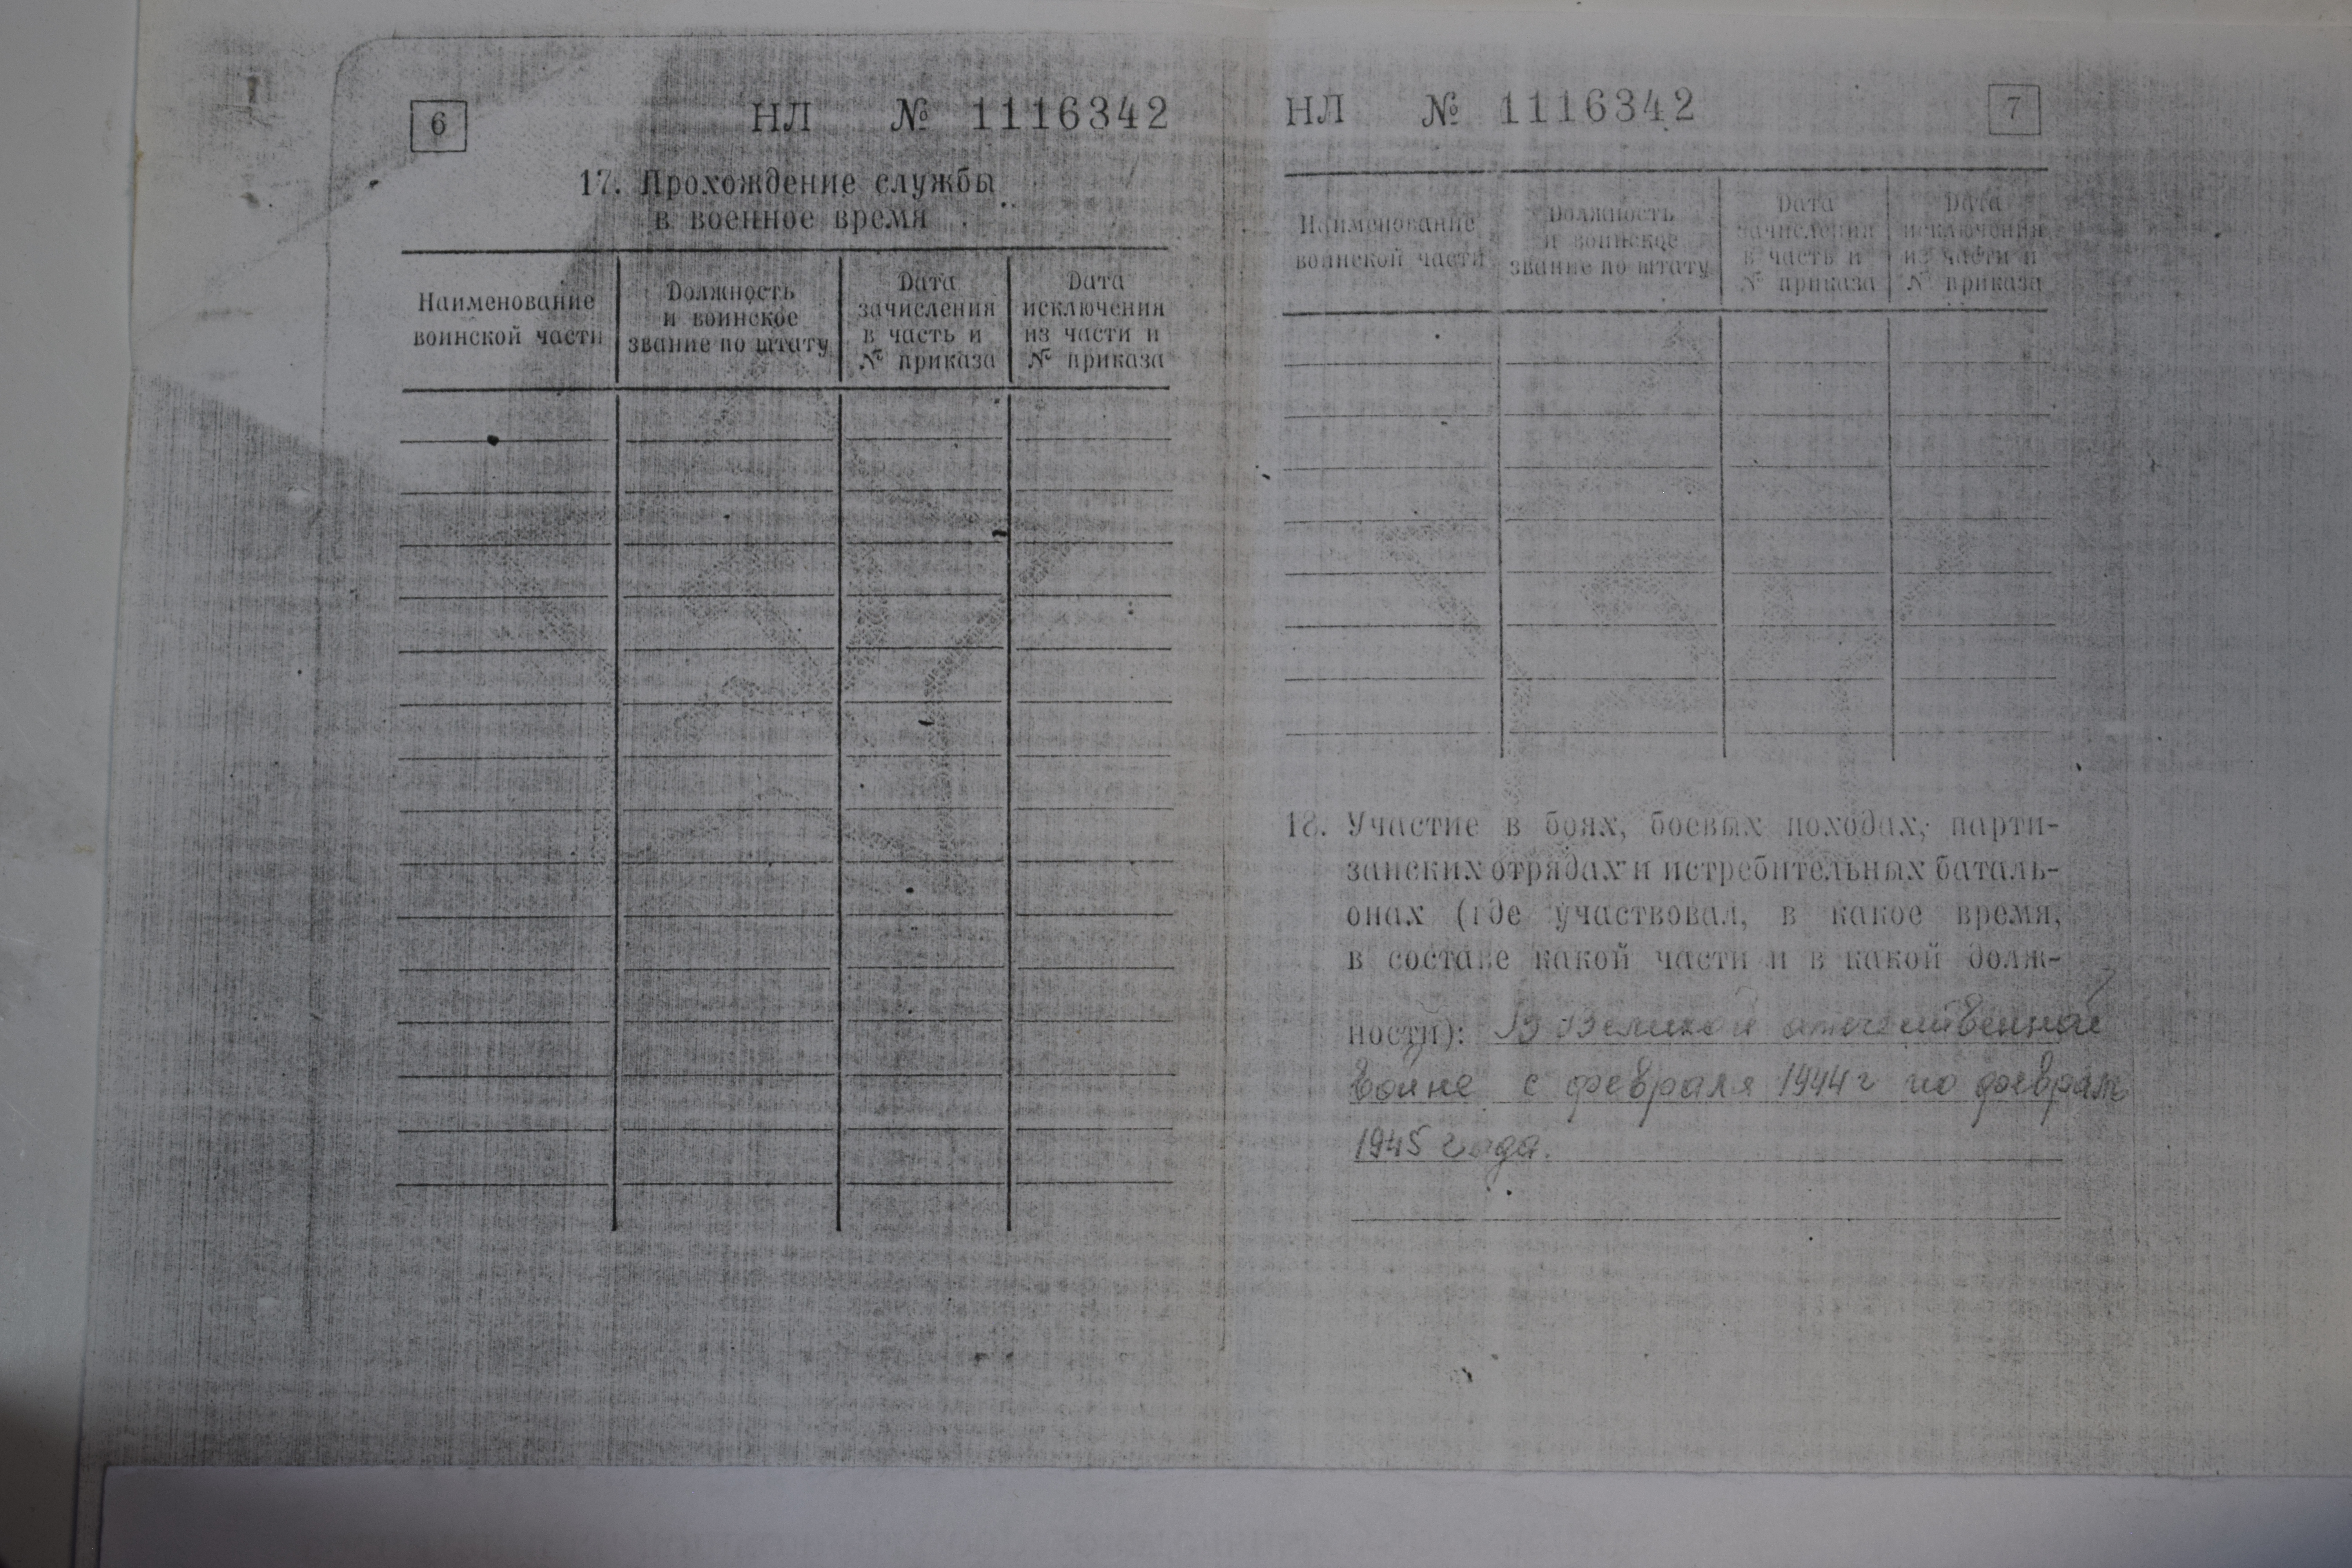 6
НЛ № 1116342
17. Прохождение службы
в военное время
Наименование
воинской части
Должность
и воинское
звание по штату
Дата
зачисления
в часть и
№ приказа
Дата
исключения
из части и
№ приказа
НЛ № 1116342
7
Наименование
воинской части
Должность
и воинское
звание по штату
Дата
зачисления
в часть и
№ приказа
Дата
исключения
из части и
№ приказа
18. Участие в боях, боевых походах, парти-
занских отрядах и истребительных баталь-
онах (где участвовал, в какое время,
в составе какой части и в какой долж-
ности): В Великой отечественной
войне с февраля 1944 г по февраль
1945 года.